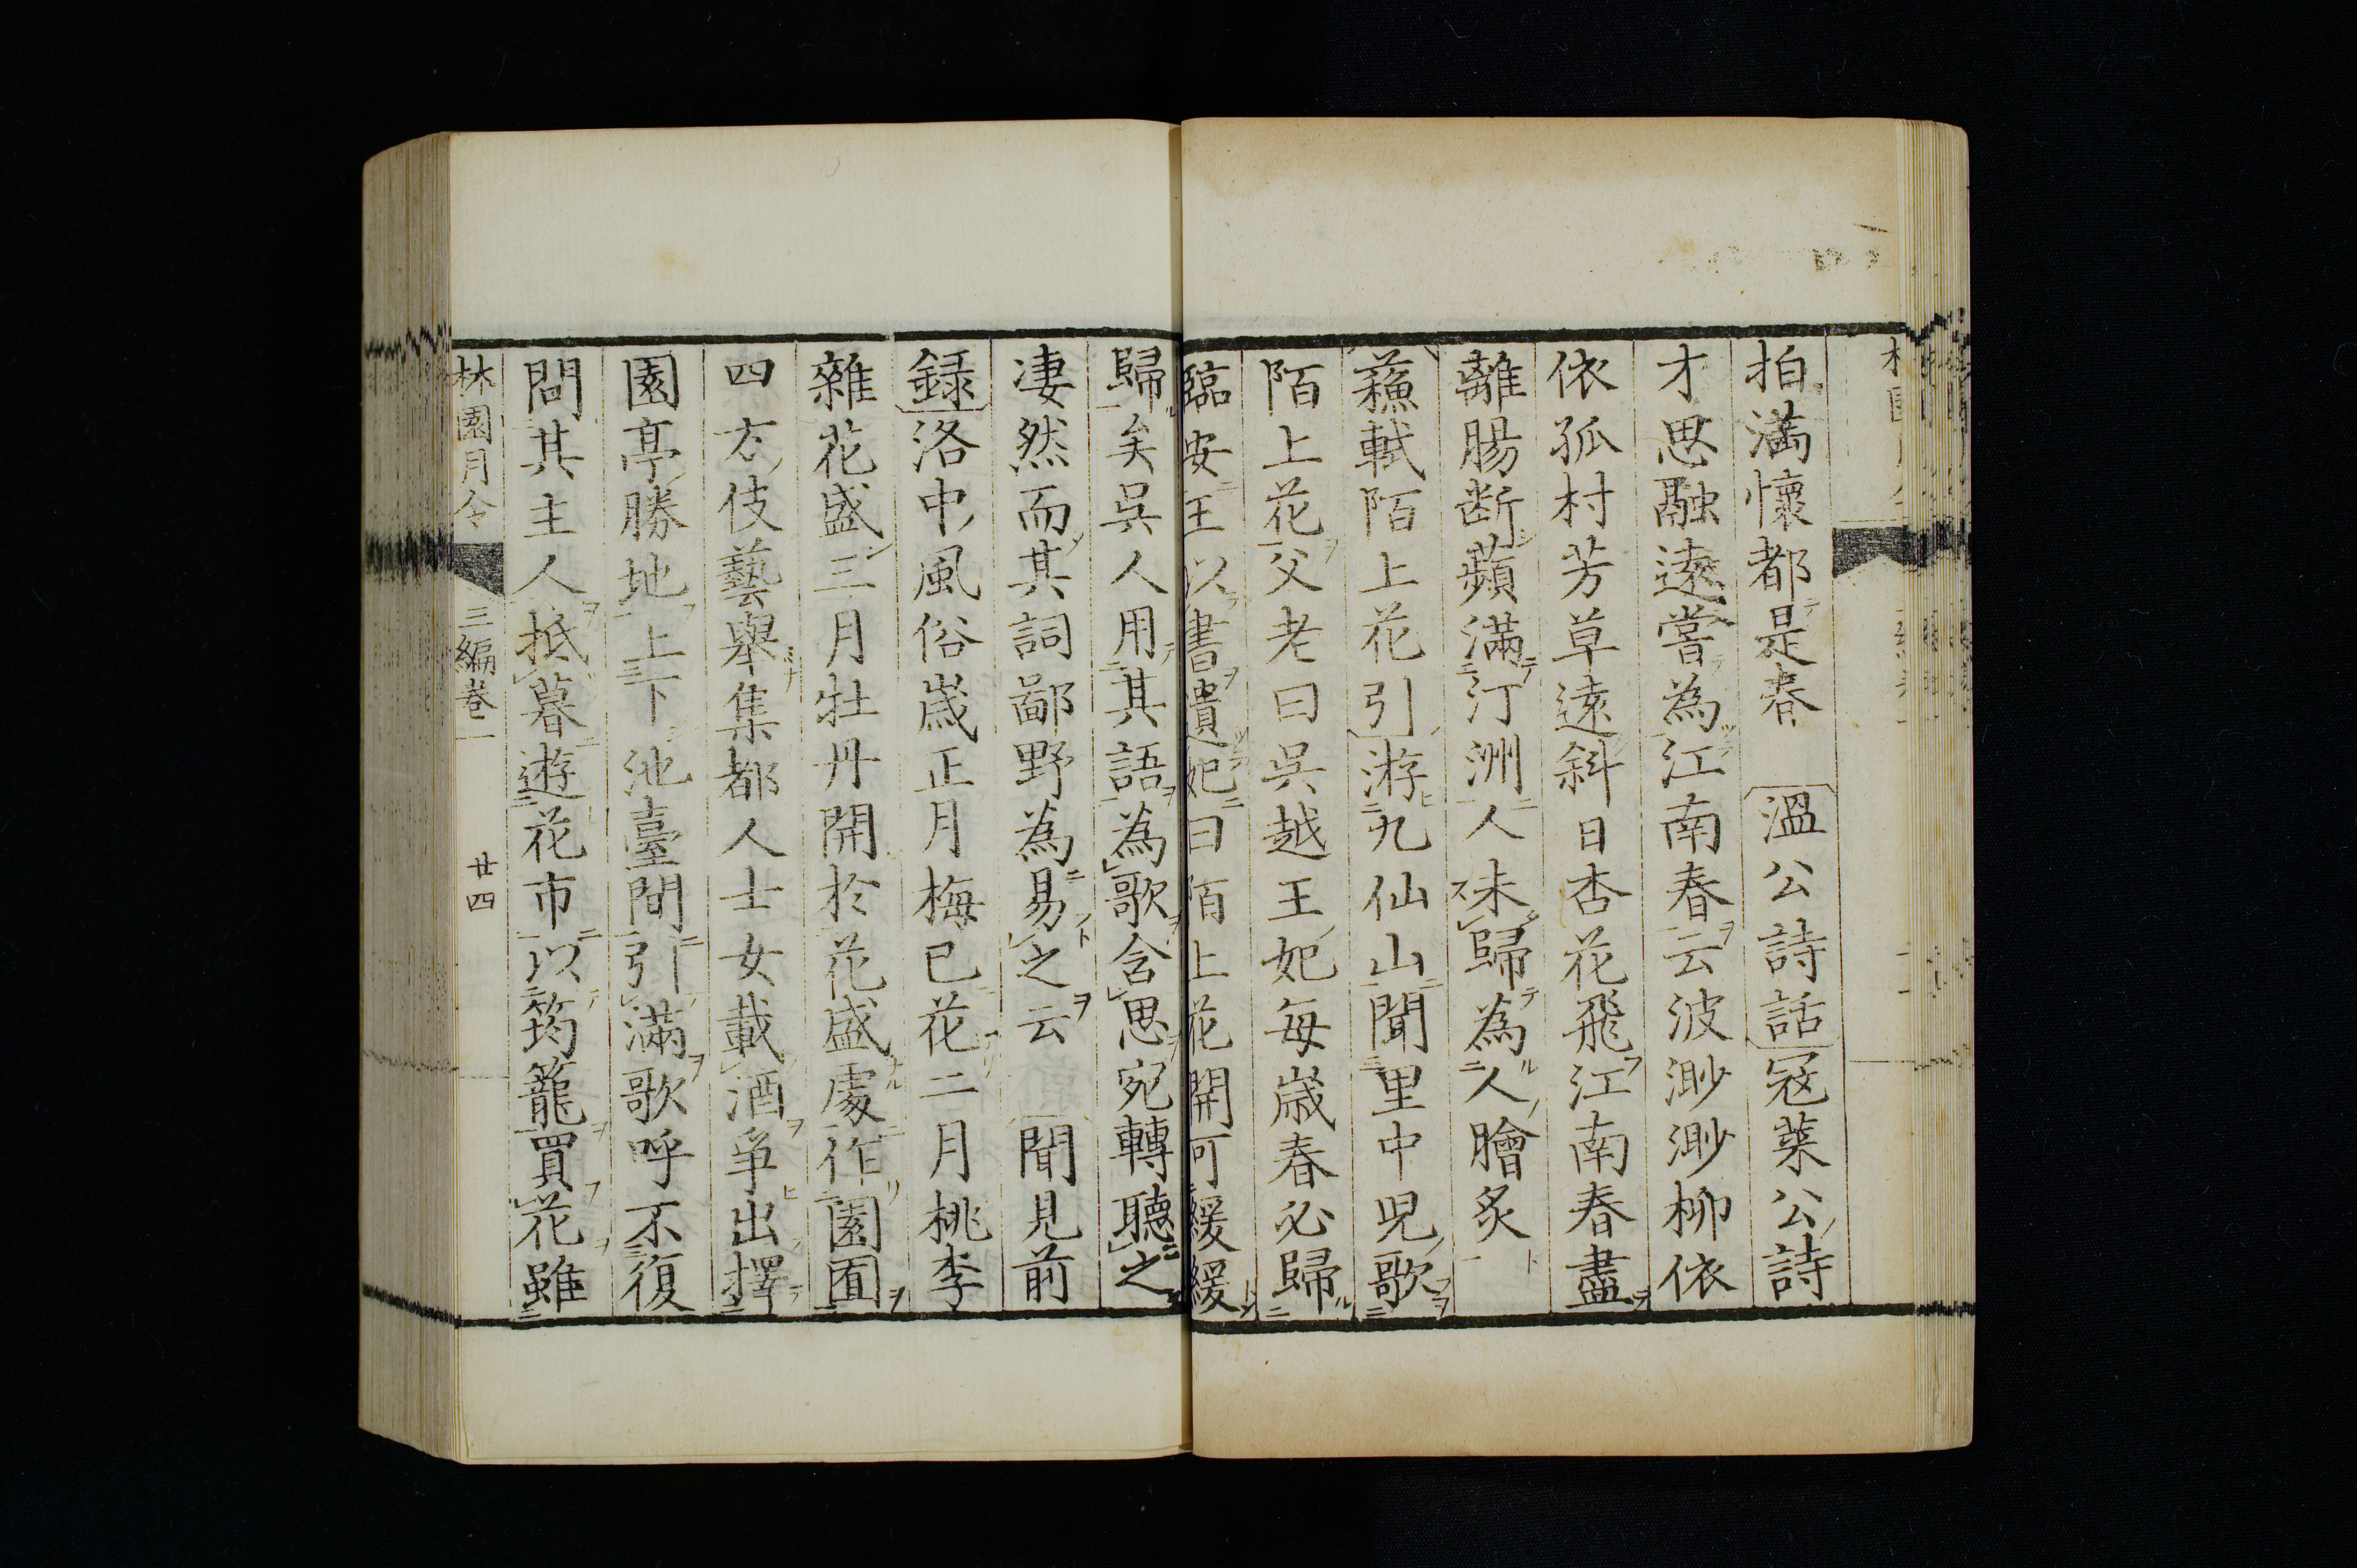 拍滿懷都是春　溫公詩話冦萊公詩
才思融遠嘗為江南春云波渺渺柳依
依孤村芳草遠斜日杏花飛江南春盡
離腸断蘋滿汀洲人未歸為人膾炙
蘓軾陌上花引游九仙山聞里中児歌
陌上花父老曰吳越王妃每歲春必歸
臨安王以書遺妃曰陌上花開可緩緩
歸矣吳人用其語為歌含思宛轉聽之
凄然而其詞鄙野為易之云　聞見前
録洛中風俗歲正月梅已花二月桃李
雜花盛三月牡丹開於花盛處作園囿
四方伎藝舉集都人士女載酒爭出擇
園亭勝地上下池臺間引滿歌呼不復
問其主人抵暮遊花市以筠籠買花雖
林園月令　三編卷一　廿四